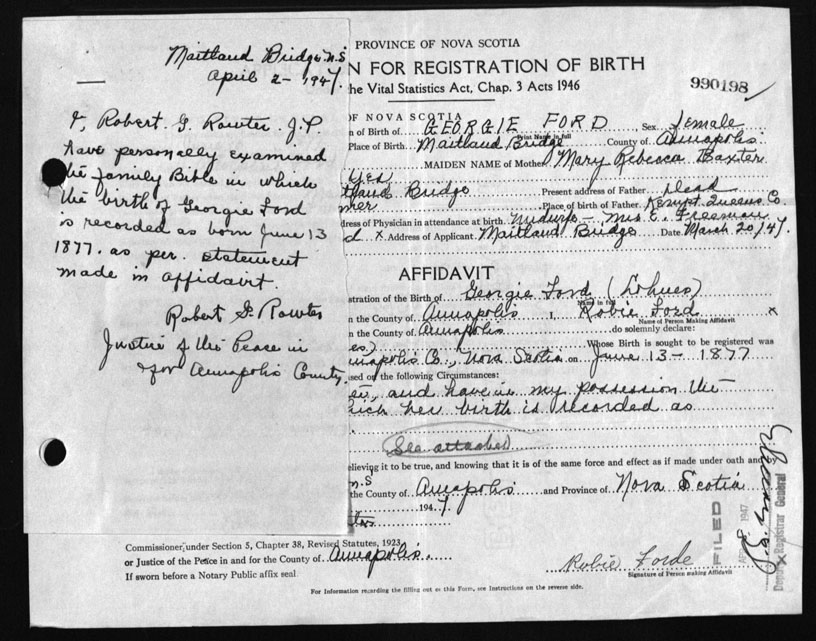 Maitland Bridge N.S
April 2 - 1947.
I, Robert G. Rowter J.P.
have personally examined
the family Bible in which
the birth of Georgie Ford
is recorded as born June 13
1877. as per. statement
made in affidavit.
Robert G. Rowter
Justice of the Peace in
for Annapolis County.
PROVINCE OF NOVA SCOTIA
N FOR REGISTRATION OF BIRTH
he Vital Statistics Act, Chap. 3 Acts 1946
990198
OF NOVA SCOTIA
n of Birth of GEORGIE FORD Sex female
Print Name in full
Place of Birth Maitland Bridge County of Annapolis
MAIDEN NAME of Mother Mary Rebecca Baxter
tland Bridge Present address of Father Dead
mer Place of birth of Father Kempt Queens Co.
dress of Physician in attendance at birth Midwife - Mrs E. Freeman
d x Address of Applicant Maitland Bridge Date March 20/47.
AFFIDAVIT
stration of the Birth of Georgie Ford
Name in full
n the County of Annapolis I, Robie Ford x
Name of Person Making Affidavit
n the County of Annapolis do solemnly declare:
es) Whose Birth is sought to be registered was
nnapolis Co., Nova Scotia on June 13 - 1877
sed on the following Circumstances:
and have in my possession the
ich her birth is recorded as
See attached
elieving it to be true, and knowing that it is of the same force and effect as if made under oath and by
n.S
the County of Annapolis and Province of Nova Scotia
1947
FILED
1947
Deputy Registrar General
Commissioner under Section 5, Chapter 38, Revised Statutes, 1923
or Justice of the Peace in and for the County of Annapolis.
If sworn before a Notary Public affix seal
Robie Forde
Signature of Person making Affidavit
For Information regarding the filling out of this Form, see Instructions on the reverse side.